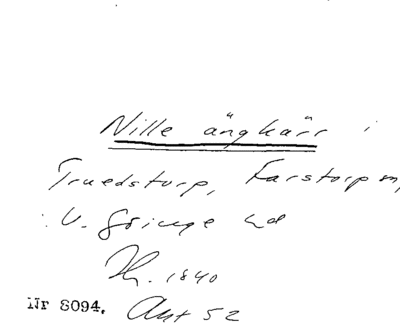 Nille ängkärr i
Truedstorp, Farstorp sn,
V. Göinge hd
1840
Nr 8094. Akt 52